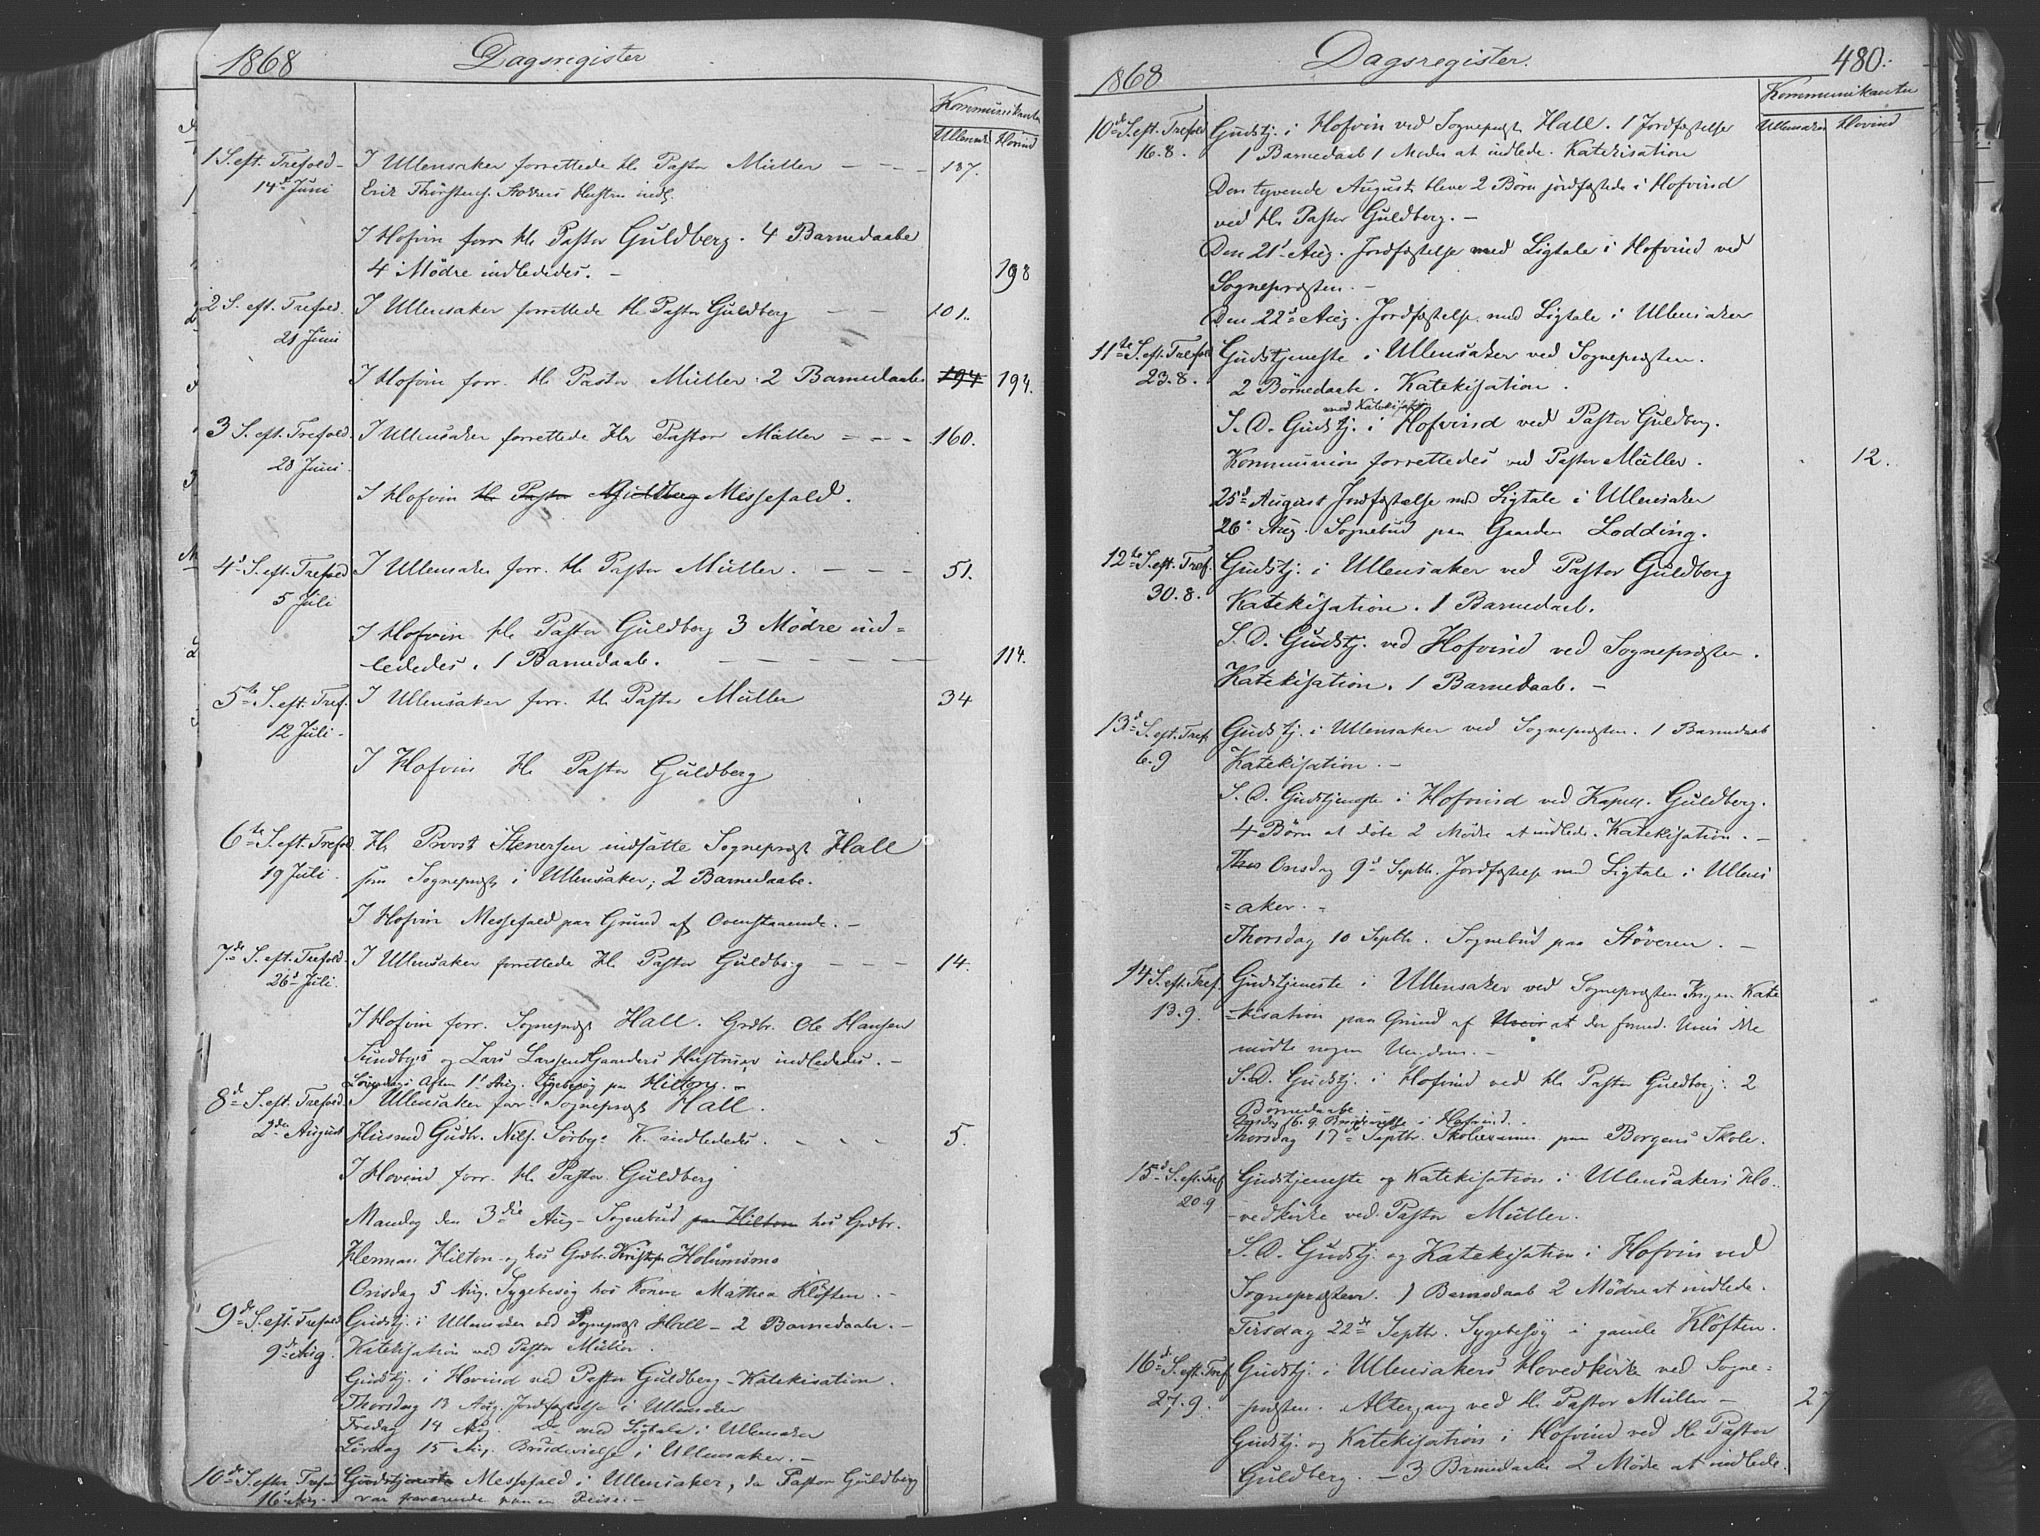 1868 Dagsregister
Kommunikanter
Ullensak. Hovind
1 S. eft. Trefold. I Ullensaker forrettede Hr Pastor Müller — — — 187.
14de Juni
indl.
I Hofvin forr. Hr Pastor Guldberg. 4 Barnedaabe
4 Mødre indlededes. — 198
2 S. eft. Trefold. I Ullensaker forrettede Hr Pastor Guldberg — — 101.
21 Juni
I Hofvin forr. Hr Pastor Müller. 2 Barnedaabe 194 194.
3 S. eft. Trefold. I Ullensaker forrettede Hr Pastor Müller — — — 160.
28 Juni.
I Hofvin Hr Pastor Guldberg Messefald.
4de S. eft. Trefold I Ullensaker forr. Hr Pastor Müller. — — — 51.
5 Juli
I Hofvin Hr Pastor Guldberg 3 Mødre ind=
lededes. 1 Barnedaab. — — — — — 114.
5te S. eft. Tref. I Ullensaker forr. Hr Pastor Müller 34
12 Juli.
I Hofvin Hr Pastor Guldberg
6te S. eft. Trefold. Hr Provst Stenersen indsatte Sogneprest Hall
19 Juli. som Sogneprest i Ullensaker; 2 Barnedaabe.
I Hofvin Messefald paa Grund af Ovenstaaende. —
7de S. eft. Trefold. I Ullensaker forrettede Hr Pastor Guldberg — — — 14.
26de Juli.
I Hofvin forr. Sogneprest Hall. Grdbr. Ole Hansen
Sundbys og Lars Larsen Gaarders Hustruer indlededes. —
Løverdags Aften 1st Aug. Sygebesøg paa Hilton. —
8de S. eft. Trefold. I Ullensaker forr. Sogneprest Hall.
2den August Husmd Gudbr. Nils. Sørbys K. indlededes. — — — 5.
I Hovind forr. Hr Pastor Guldberg
Mandag den 3die Aug. Sognebud paa Hilton hos Grdbr.
Herman Hilton og hos Grdbr. Kristof. Holumsmo
Onsdag 5 Aug. Sygebesøg hos Konen Mathea Kløften. —
9de S. eft. Trefold Gudstj. i Ullensaker ved Sogneprest Hall — 2 Barnedaabe. —
9de Aug. Katekisation ved Pastor Müller.
Gudstj. i Hovind ved Pastor Guldberg — Katekisation.
Thorsdag 13 Aug. Jordfæstelse i Ullensaker
Fredag 14 Aug. Do med Ligtale i Ullensaker
Lørdag 15 Aug. Brudevielse i Ullensaker. —
10de S. efter Trefold Gudstjeneste Messefald i Ullensaker, da Pastor Guldberg
16 Aug. var fraværende paa en Reise. —
1868 Dagsregister. 480.
Kommunikanter
Ullensaker Hovind
10de S. eft. Trefold Gudstj. i Hofvin ved Sogneprest Hall. 1 Jordfæstelse
16.8. 1 Barnedaab 1 Moder at indlede. Katekisation
Den tyvende August bleve 2 Børn jordfæstede i Hofvind
ved Hr Pastor Guldberg. —
Den 21st Aug. Jordfæstelse med Ligtale i Hofvind ved
Sognepresten. —
Den 22de Aug. Jordfæstelse med Ligtale i Ullensaker
11te S. eft. Trefold Gudstjeneste i Ullensaker ved Sognepresten.
23.8. 2 Børnedaabe. Katekisation.
med Katekisation
S. D. Gudstj. i Hofvind ved Pastor Guldberg.
Kommunion forrettedes ved Pastor Müller. 12.
25de August Jordfæstelse med Ligtale i Ullensaker
26de Aug. Sognebud paa Gaarden Lodding.
12te S. eft. Tref. Gudstj. i Ullensaker ved Pastor Guldberg
30.8. Katekisation. 1 Barnedaab.
S. D. Gudstj. ved Hofvind ved Sognepresten.
Katekisation. 1 Barnedaab. —
13de S. eft. Tref. Gudstj. i Ullensaker ved Sognepresten. 1 Barnedaab
6.9 Katekisation. —
S. D. Gudstjeneste i Hofvind ved Kapell. Guldberg.
4 Børn at døbe 2 Mødre at indlede. Katekisation. —
Thors Onsdag 9de Septbr. Jordfæstelse med Ligtale i Ullens
=aker. —
Thorsdag 10 Septbr. Sognebud paa Støveren. —
14 S. eft. Tref. Gudstjeneste i Ullensaker ved Sognepresten Ingen Kate
13.9. =kisation paa Grund af at der
mødte nogen Ungdom. —
S. D. Gudstj. i Hofvind ved Hr Pastor Guldberg. 2
Børnedaabe
Onsdag 16.9. Brudevielse i Hofvind.
Thorsdag 17de Septbr. Skoleexamen paa Borgens Skole.
15de S. eft. Tref Gudstjeneste og Katekisation i Ullensakers Ho=
20.9 =vedkirke ved Pastor Müller.
S. D. Gudstj. og Katekisation i Hofvin ved
Sognepresten. 1 Barnedaab 2 Mødre at indlede.
Tirsdag 22de Septbr. Sygebesøg i gamle Kløften.
16de S. eft. Tref Gudstj. i Ullensakers Hovedkirke ved Sogne=
27.9. presten. Altergang ved Hr Pastor Müller — 27
Gudstj. og Katekisation i Hofvind ved Hr Pastor
Guldberg. — 3 Barnedaabe 2 Mødre at indlede.